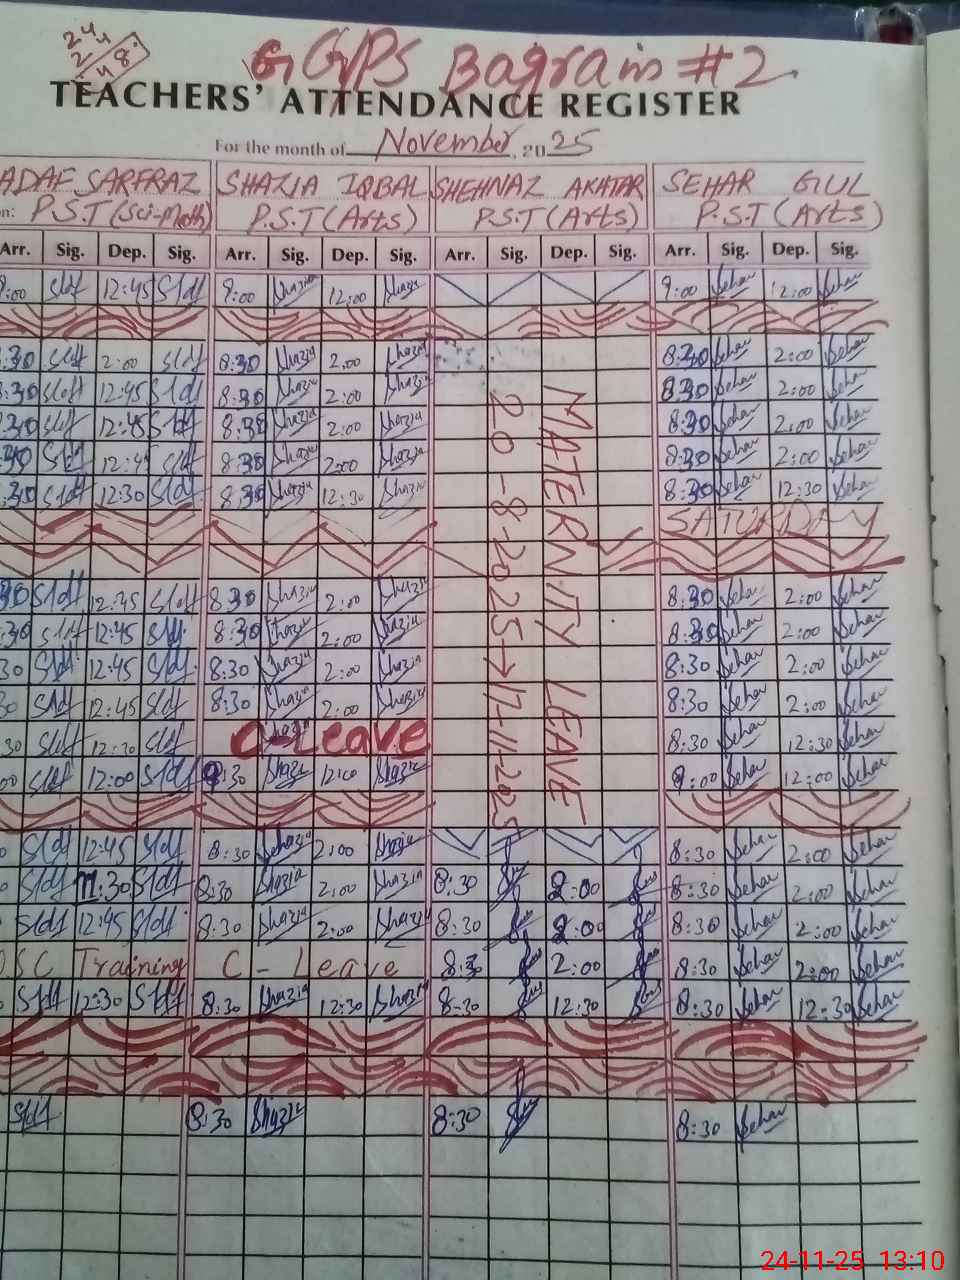 24
2
48
GGPS Bagram #2
TEACHERS' ATTENDANCE REGISTER
For the month of November, 2025
ADAF SARFRAZ SHAZIA IQBAL SHEHNAZ AKHTAR SEHAR GUL
n: P.S.T (Sci-Math) P.S.T (Arts) P.S.T (Arts) P.S.T (Arts)
Arr. Sig. Dep. Sig. Arr. Sig. Dep. Sig. Arr. Sig. Dep. Sig. Arr. Sig. Dep. Sig.
9:00 12:45 9:00 Shazia 12:00 Shazia 9:00 Sehar 12:00 Sehar
:30 2:00 8:30 Shazia 2:00 Shazia 8:30 Sehar 2:00 Sehar
:30 12:45 8:30 Shazia 2:00 Shazia 8:30 Sehar 2:00 Sehar
:30 12:45 8:30 Shazia 2:00 Shazia 8:30 Sehar 2:00 Sehar
:30 12:45 8:30 Shazia 2:00 Shazia 8:30 Sehar 2:00 Sehar
:30 12:30 8:30 Shazia 12:30 Shazia 8:30 Sehar 12:30 Sehar
SATURDAY
MATERNITY LEAVE
20-8-2025→17-11-2025
30 12:45 8:30 Shazia 2:00 Shazia 8:30 Sehar 2:00 Sehar
:30 12:45 8:30 Shazia 2:00 Shazia 8:30 Sehar 2:00 Sehar
30 12:45 8:30 Shazia 2:00 Shazia 8:30 Sehar 2:00 Sehar
12:45 8:30 Shazia 2:00 Shazia 8:30 Sehar 2:00 Sehar
30 12:30 C-Leave 8:30 Sehar 12:30 Sehar
00 12:00 9:30 Shazia 12:00 Shazia 9:00 Sehar 12:00 Sehar
12:45 8:30 Shazia 2:00 Shazia 8:30 Sehar 2:00 Sehar
11:30 8:30 Shazia 2:00 Shazia 8:30 2:00 8:30 Sehar 2:00 Sehar
12:45 8:30 Shazia 2:00 Shazia 8:30 2:00 8:30 Sehar 2:00 Sehar
SC Training C-Leave 8:30 2:00 8:30 Sehar 2:00 Sehar
12:30 8:30 Shazia 12:30 Shazia 8:30 12:30 8:30 Sehar 12:30 Sehar
8:30 Shazia 8:30 8:30 Sehar
24-11-25 13:10